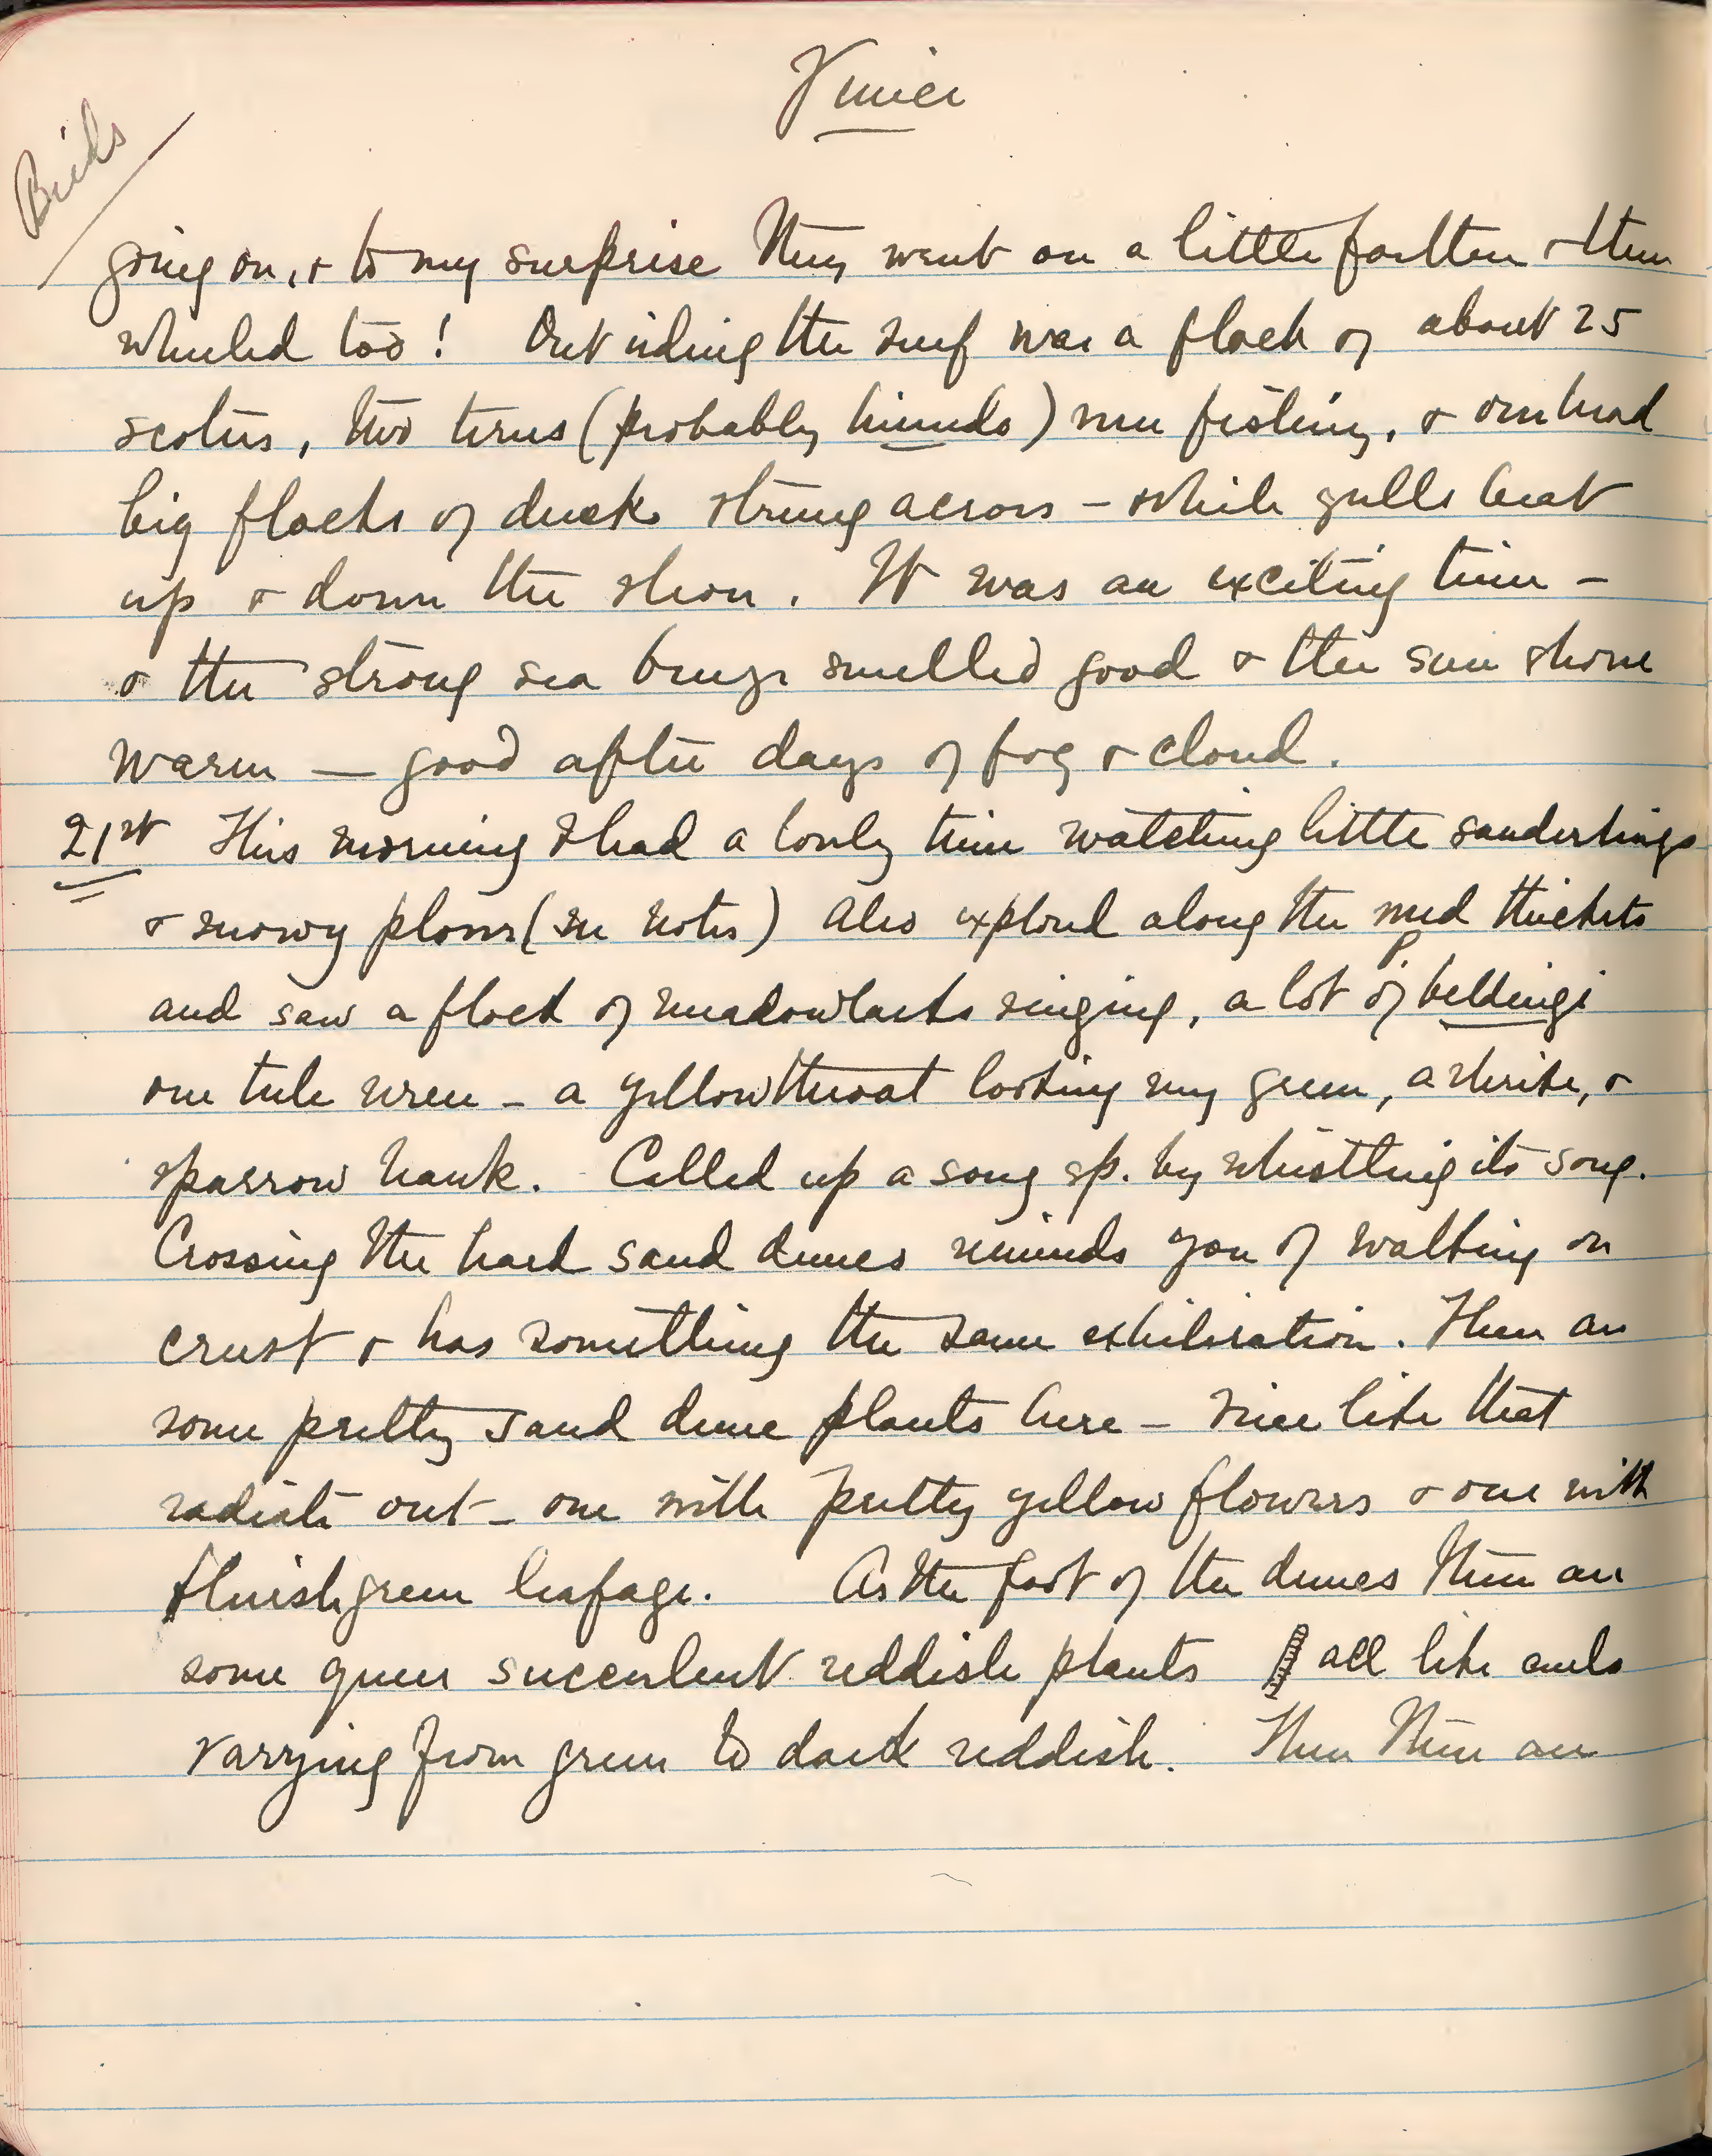 Venice
Birds
going on, & to my surprise they went on a little farther & then
wheeled too! Out riding the surf was a flock of about 25
scoters, two terns (probably hirundo) were fishing, & overhead
big flocks of ducks strung across – while gulls beat
up & down the shore. It was an exciting time –
& the strong sea breeze smelled good & the sun shone
warm — good after days of fog & cloud.
21st This morning I had a lovely time watching little sanderlings
& snowy plover (see notes) Also explored along the mud thickets
and saw a flock of meadowlarks singing, a lot of P. beldingi
one tule wren – a yellowthroat looking very green, a shrike, &
sparrow hawk. Called up a song sp. by whistling its song.
Crossing the hard sand dunes reminds you of walking on
crust & has something the same exhiliration. There are
some pretty sand dune plants here – vine like that
radiate out – one with pretty yellow flowers & one with
bluish green leafage. At the foot of the dunes there are
some queer succulent reddish plants all like
varying from green to dark reddish. Then there are